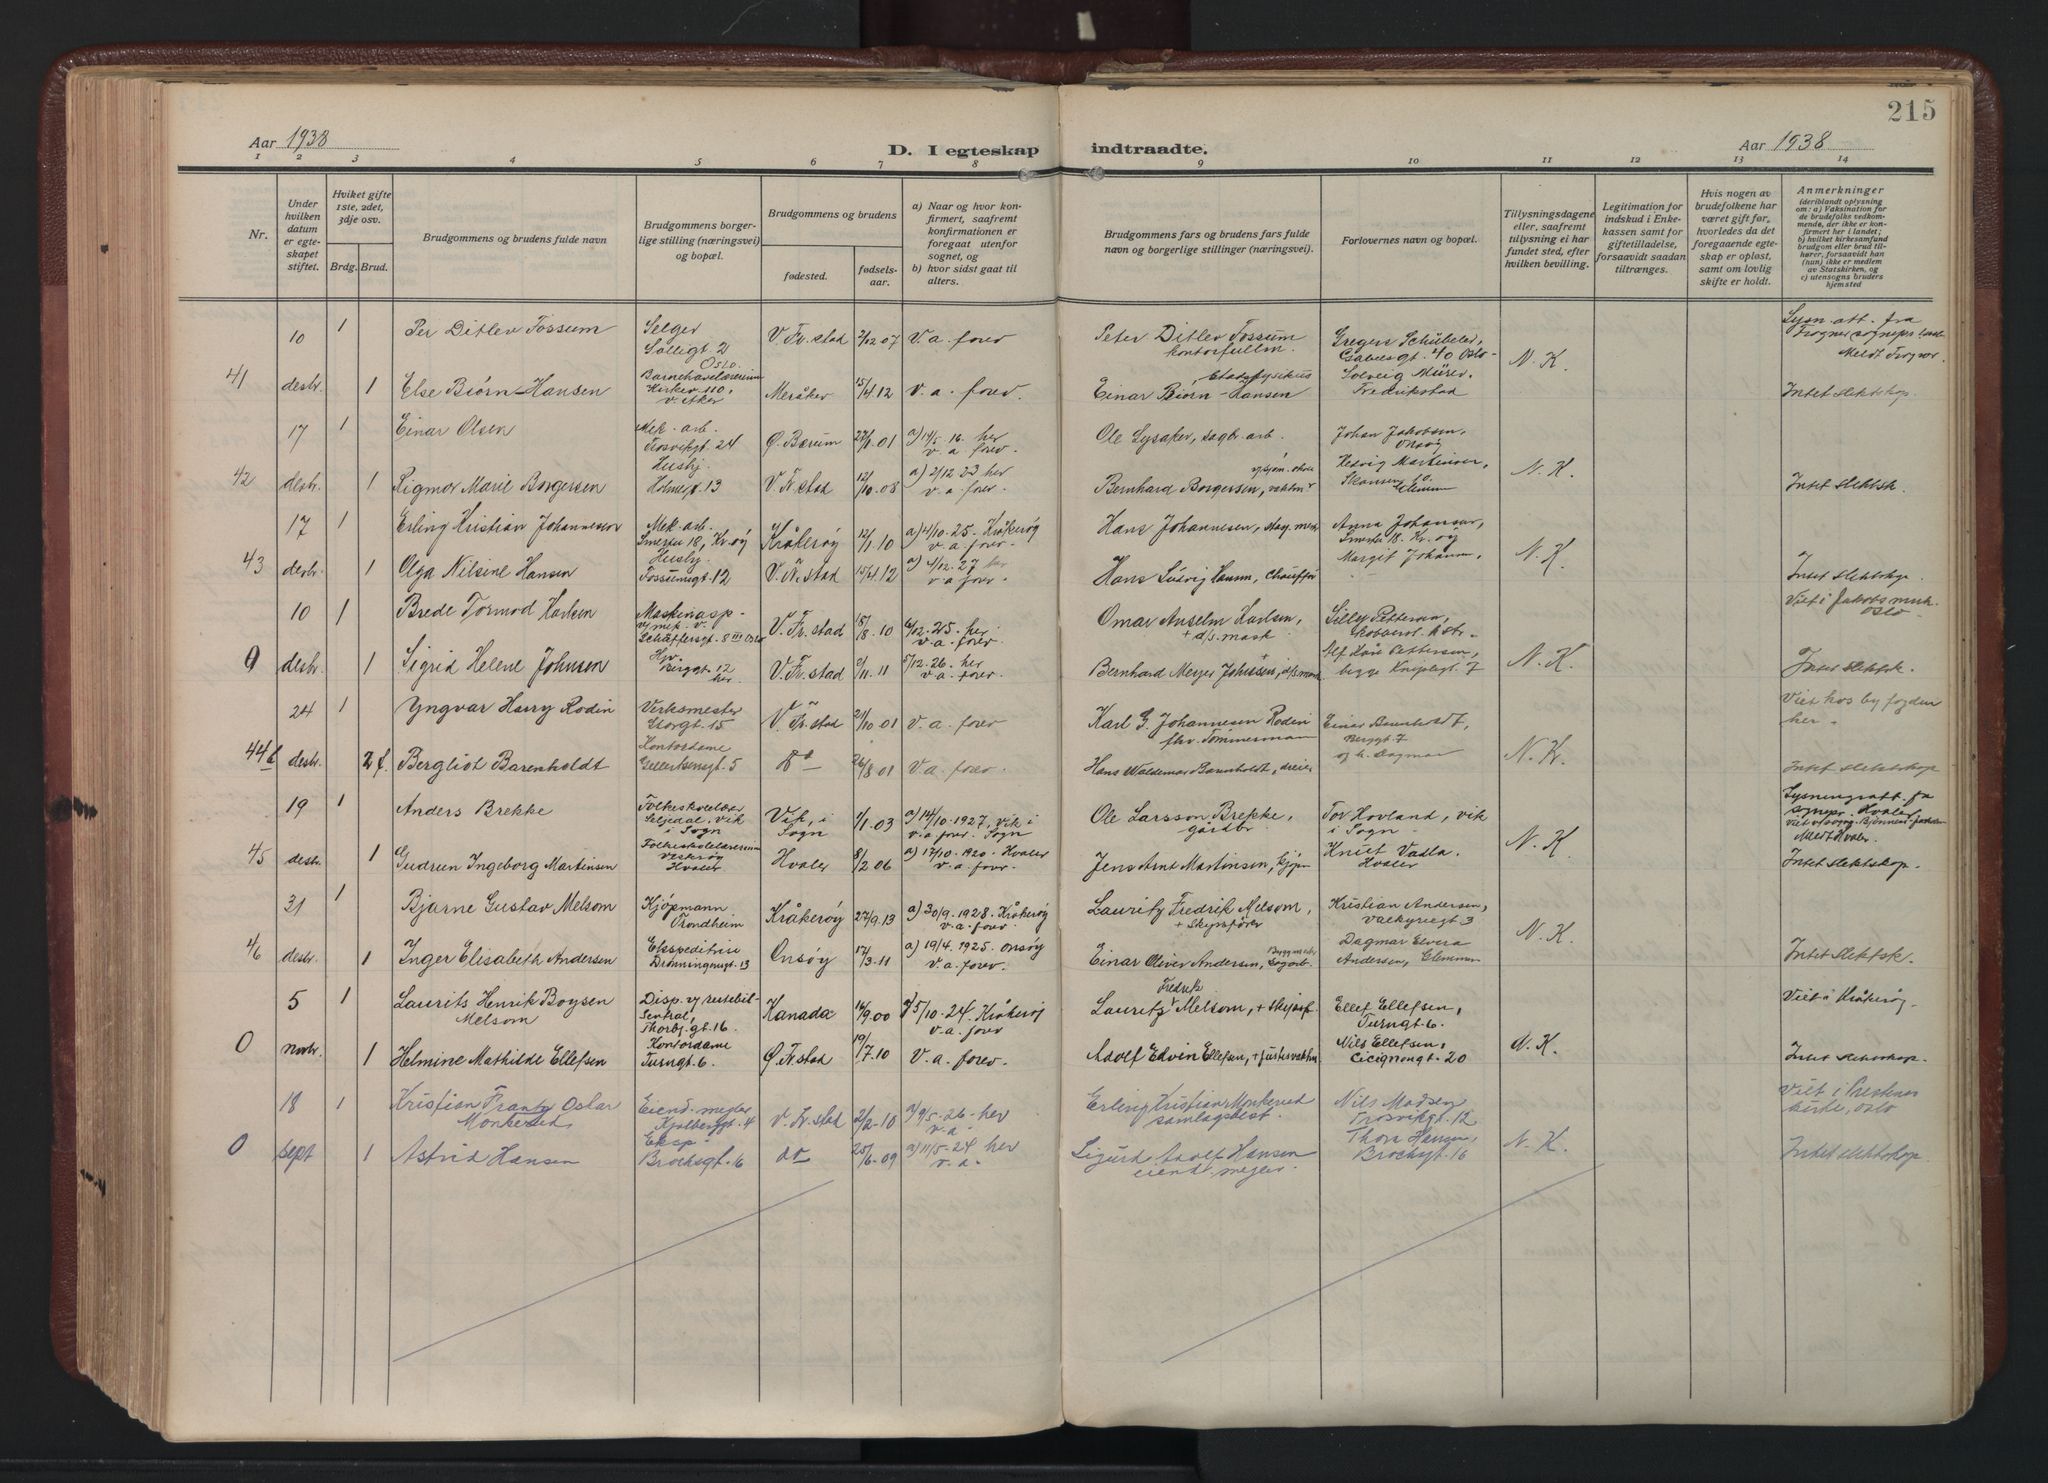 215
Aar 1938
D. I egteskap indtraadte.
Aar 1938
1 2 3 4 5 6 7 8 9 10 11 12 13 14
Nr.
Under hvilken datum er egteskapet stiftet.
Hviket gifte 1ste, 2det, 3dje osv.
Brdg. Brud.
Brudgommens og brudens fulde navn
Brudgommens borgerlige stilling (næringsvei) og bopæl.
Brudgommens og brudens
fødested.
fødselsaar.
a) Naar og hvor konfirmert, saafremt konfirmationen er foregaat utenfor sognet, og
b) hvor sidst gaat til alters.
Brudgommens fars og brudens fars fulde navn og borgerlige stillinger (næringsvei).
Forlovernes navn og bopæl.
Tillysningsdagene eller, saafremt tillysning ei har fundet sted, efter hvilken bevilling.
Legitimation for indskud i Enkekassen samt for giftetilladelse, forsaavidt saadan tiltrænges.
Hvis nogen av brudefolkene har været gift før, hvorledes da det foregaaende egteskap er opløst, samt om lovlig skifte er holdt.
Anmerkninger
(deriblandt oplysning om: a) Vaksination for de brudefolks vedkommende, der ikke er konfirmert her i landet; b) hvilket kirkesamfund brudgom eller brud tilhører, forsaavidt han (hun) ikke er medlem av Statskirken, og c) utensogns bruders hjemsted
10 1 Per Ditlev Fossum Selger Solligt 2 Oslo V. Fr. stad 2/12 07 V. a. forev Peter Ditlev Fossum kontorfullm. Gregers Schübeler, Gabelsgt. 40 Oslo N. K. Lysn. att. fra
41 desbr. 1 Else Bjørn-Hansen Barnehavelærerinne Kirkev 110, V. Aker Meråker 15/4 12 v. a. forev. Einar Bjørn-Hansen Stadsfysikus Solveig Fredrikstad Intet slektskap.
17 1 Einar Olsen Mek. arb. Trosvikgt. 24 Ø. Bærum 27/1 01 a) 14/5. 16. her v. a. forev Ole Lysaker, sagbr. arb. Johan Jakobsen, Onsøy N. K.
42 desbr. 1 Rigmor Marie Borgersen Holmegt. 13 V. Fr. stad 12/10 08 a) 2/12 23 her v. a. forev. Bernhard Borgersen, Hedvig Martinsen, Glemmen Intet slektsk.
17 1 Erling Kristian Johannesen Mek. arb. Smertu 18, Kr. øy Kråkerøy 12/1 10 a) 4/10. 25. Kråkerøy v. a. forev. Hans Johannesen, Anna Johansen, Smertu 18. Kr. øy N. K.
43 desbr. 1 Olga Nilsine Hansen Fossumsgt. 12 V. Fr. stad 15/4 12 a) 4/12. 27 her v. a. forev. Hans Ludvig Hansen, Chauffør Margit Johansen, Intet slektskap.
10 1 Brede Tormod Karlsen V. Fr. stad 15/8 10 6/12. 25. her v. a. forev. Omar Anselm Karlsen, N. K. Viet i Jakobs
9 desbr. 1 Sigrid Helene Johnsen Berggt. 12 her V. Fr. stad 9/11 11 5/12. 26. her v. a. forev. Bernhard Meyer Johnsen, Pettersen, begge Knipleyt. 7 Intet slektsk.
24 1 Yngvar Harry Rodin Verksmester Storgt. 15 V. Fr. stad 21/10 01 V. a. forev. Karl G. Johannesen Rodin fhv. Tømmermann Einar Barenholdt, Berggt. 7 og h. Dagmar N. K. Viet hos byfogden her
44 desbr. 2 f. Bergliot Barenholdt Kontordame do 26/8 01 V. a. forev. Hans Waldemar Barenholdt, dreier Intet slektskap
19 1 Anders Brekke Folkeskolelærer Seljedal, Vik i Sogn Vik, i Sogn 1/1 03 a) 14/10. 1927, Vik i Sogn v. a. forev. Ole Larsson Brekke, gårdbr. Tor Hovland, Vik i Sogn N. K.
45 desbr. 1 Gudrun Ingeborg Martinsen Folkeskolelærerinne Vesterøy Hvaler Hvaler 8/2 06 a) 17/10. 1920. Hvaler v. a. forev. Jens Arnt Martinsen, Knut Vadla. Hvaler Intet slektskap.
31 1 Bjarne Gustav Melsom Kjøpmann Trondheim Kråkerøy 27/9. 13 a) 30/9. 1928. Kråkerøy v. a. forev. Lauritz Fredrik Melsom, + Skipsfører Kristian Andersen, Valkyriegt 3 N. K.
46 desbr. 1 Inger Elisabeth Andersen Ekspeditrise Dronningensgt. 13 Onsøy 17/3. 11 a) 19/4. 1925. Onsøy v. a. forev. Einar Oliver Andersen, Dagmar Elvera Andersen, Glemmen Intet slektsk.
5 1 Laurits Henrik Boysen Melsom Disp. v/ rutebilsentral, Thorbj. gt. 16 Kanada 14/9. 00 a) 5/10. 24. Kråkerøy v. a. forev Lauritz Fredrik Melsom, + Skipsf. Ellef Ellefsen, Turngt. 6. N. K. Viet i Kråkerøy
0 novbr. 1 Helmine Mathilde Ellefsen Kontordame Turngt. 6. Ø. Fr. stad 19/7. 10 V. a. forev. Adolf Edvin Ellefsen, Nils Ellefsen, Cicignongt. 20 Intet slektskap.
18 1 Kristian Frantz Oskar Monkerud Eiend. megler Kjølberggt. 4 V. Fr. stad 2/2. 10 a) 9/5. 26. her v. a. Erling Kristian Monkerud samlagsbest. Nils Madsen Trosvikgt. 12 N. K. Viet i kirke, Oslo
0 sept 1 Astrid Hansen Eksp. Brochsgt. 16 do 25/6. 09 a) 11/5. 24 her v. a. Sigurd Adolf Hansen eiend. megler. Thora Hansen, Brochsgt. 16 Intet slektskap.